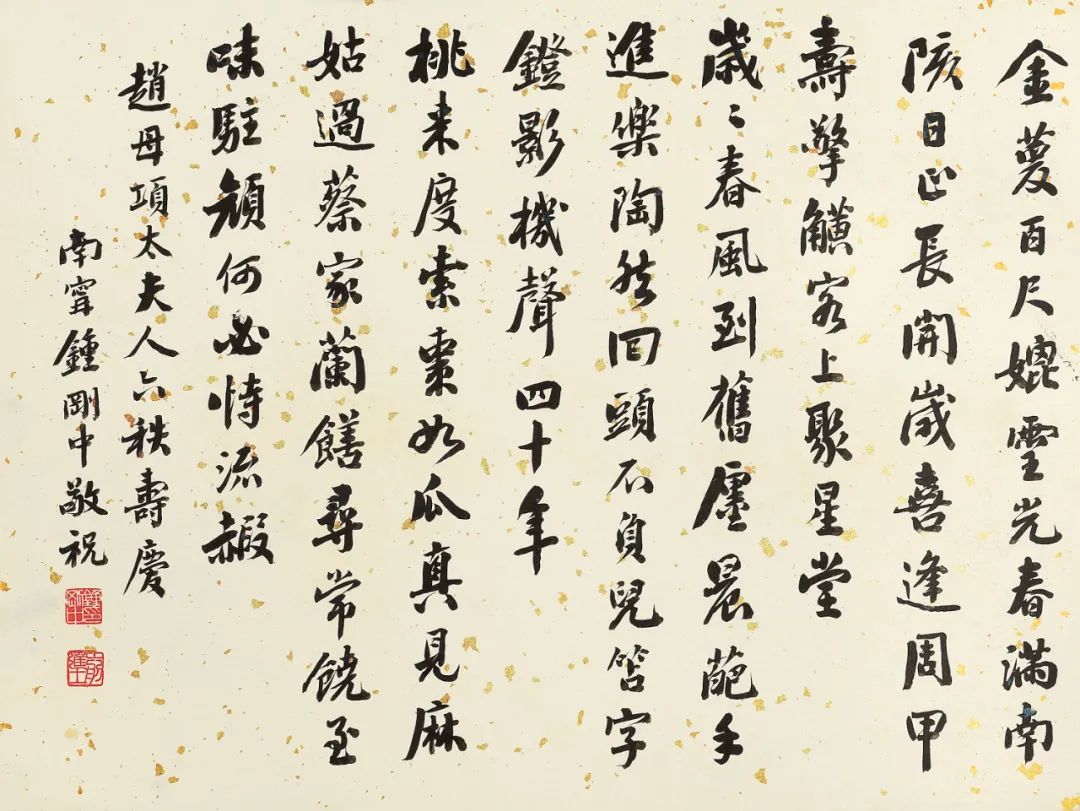 金萲百尺媲霊光春滿南
陔日正長開歲喜逢周甲
壽擎觵客上聚星堂
歲〻春風到舊廬晨葩手
進樂陶然回頭不負兒笘字
鐙影機聲四十年
桃来度索棗如瓜真見麻
姑過蔡家蘭饍尋常饒至
味駐顏何必恃流赮
趙母項太夫人六秩壽慶
南甯鍾剛中敬祝